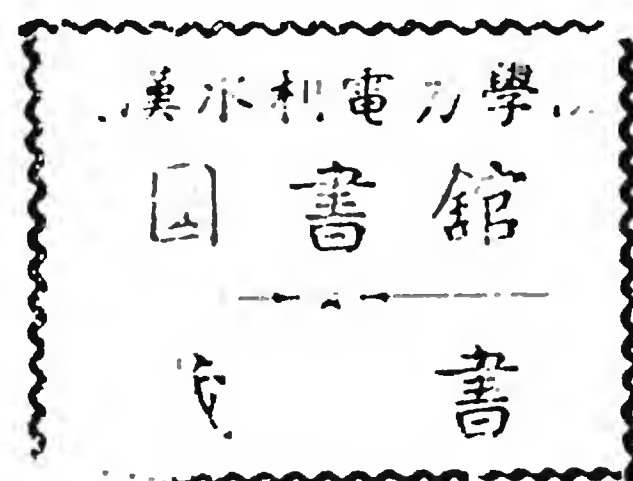 漢水利電力學
圖書館
書